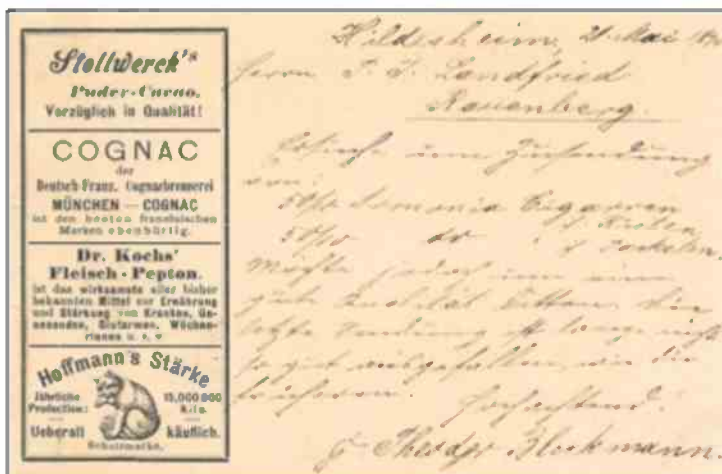 Stollwerck's
Puder-Cacao.
Vorzüglich in Qualität!
COGNAC
der
Deutsch-Franz. Cognacbrennerei
MÜNCHEN — COGNAC
ist den besten französischen
Marken ebenbürtig.
Dr. Kochs'
Fleisch-Pepton.
ist das wirksamste aller bisher
bekannten Mittel zur Ernährung
und Stärkung von Kranken, Ge-
nesenden, Blutarmen, Wöchne-
rinnen u. s. w
Hoffmann's Stärke
Jährliche
Production:
15,000,000
Kilo.
Ueberall
käuflich.
Schutzmarke.
Hildesheim, Mai
Herrn Landfried
Rauenberg.
Ersuche um Zusendung
von:
Cigarren
do
Möchte jedoch um eine
gute Qualität bitten, die
letzte Sendung ist lange nicht
so gut ausgefallen, wie die
früheren.
Hochachtend.
Theodor Blockmann.